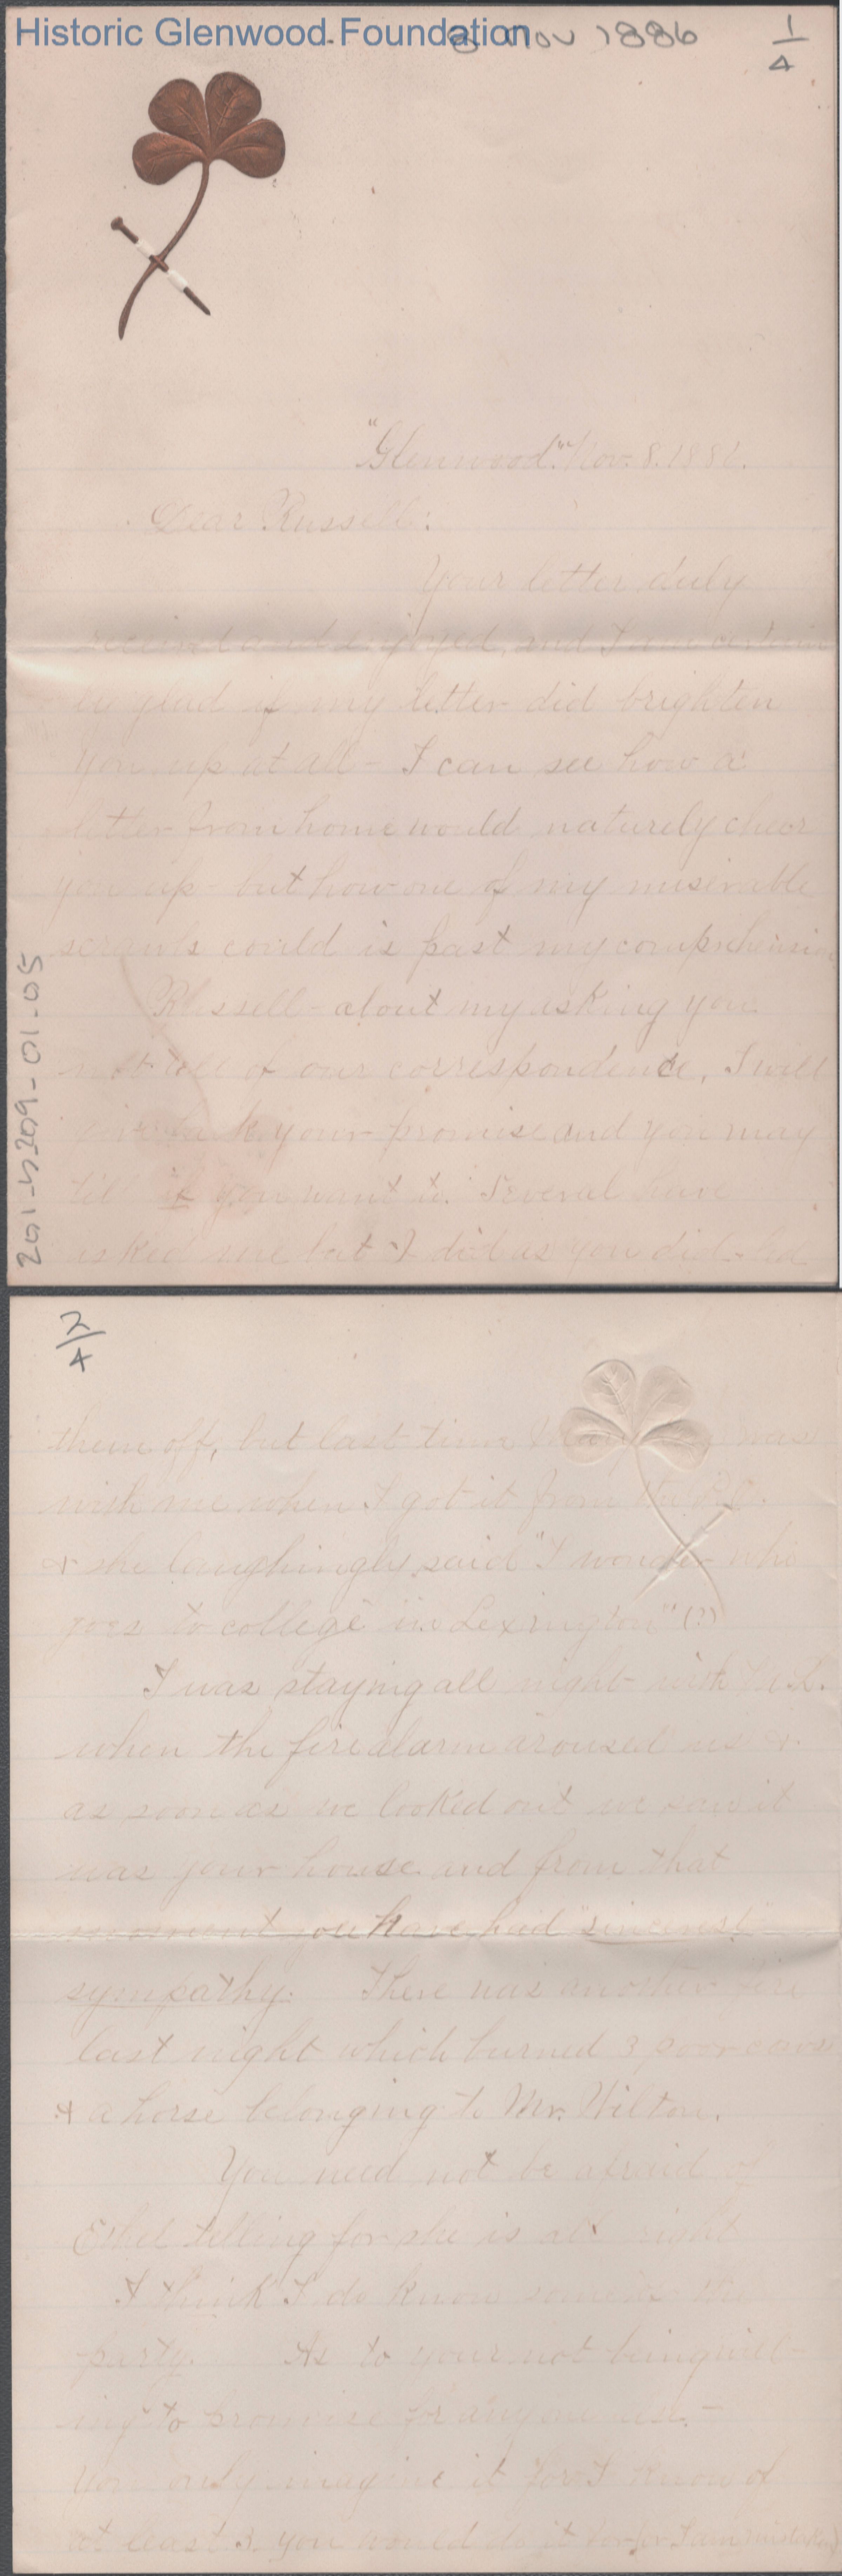 Historic Glenwood Foundation
8 Nov 1886
1/4
"Glenwood." Nov. 8. 1886.
Dear Russell:
Your letter duly
received and enjoyed, and I am certain
ly glad if my letter did brighten
you up at all - I can see how a
letter from home would naturely cheer
you up - but how one of my miserable
scrawls could is past my comprehension
Russell - about my asking you
not tell of our correspondence, I will
give back your promise and you may
tell if you want to. Several have
asked me but I did as you did -
201-5209-01-05
2/4
them off, but last time Mary was
with me when I got it from the P.O.
& she laughingly said "I wonder who
goes to college in Lexington" (?)
I was staying all night with
when the fire alarm aroused us &
as soon as we looked out we saw it
was your house and from that
moment you have had "sincerest"
sympathy. There was another fire
last night which burned 3 poor cows
& a horse belonging to Mr. Wilton.
You need not be afraid of
Ethel telling for she is all right
I think I do know some of the
party. As to your not being will-
ing to promise for anyone else -
You only imagine it for I know of
at least 3 you would do it for (or I am mistaken)